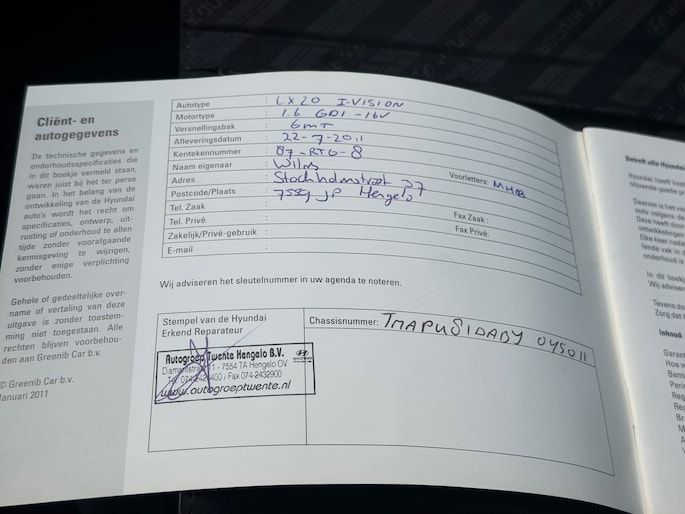 Cliënt- en
autogegevens
De technische gegevens en
onderhoudsspecificaties die
in dit boekje vermeld staan,
waren juist bij het ter perse
gaan. In het belang van de
ontwikkeling van de Hyundai
auto's wordt het recht om
specificaties, ontwerp, uit-
rusting of onderhoud te allen
tijde zonder voorafgaande
kennisgeving te wijzigen,
zonder enige verplichting
voorbehouden.
Gehele of gedeeltelijke over-
name of vertaling van deze
uitgave is zonder toestem-
ming niet toegestaan. Alle
rechten blijven voorbehou-
den aan Greenib Car b.v.
© Greenib Car b.v.
Januari 2011
Autotype : LX20 I-VISION
Motortype : 1.6 GDI -16V
Versnellingsbak : 6MT
Afleveringsdatum : 22-7-2011
Kentekennummer : 87-RTG-8
Naam eigenaar : Wilms Voorletters: MHB
Adres : Stockholmstraat 27
Postcode/Plaats : 7559 JP Hengelo
Tel. Zaak : Fax Zaak :
Tel. Privé : Fax Privé:
Zakelijk/Privé-gebruik :
E-mail :
Wij adviseren het sleutelnummer in uw agenda te noteren.
Stempel van de Hyundai
Erkend Reparateur
Chassisnummer: TMAPU81DADJ 045011
Autogroep Twente Hengelo B.V.
11 - 7554 TA Hengelo OV
/ Fax 074-2432900
www.autogroeptwente.nl
Betreft alle Hyundai
Hyundai heeft
Daarom is het
auto volgens
Deze heeft
ontwikkelingen
Elke keer
onderhoud is
In dit
Wij adviseer
Tevens
Zorg dat
Inhoud
Garant
Hoe